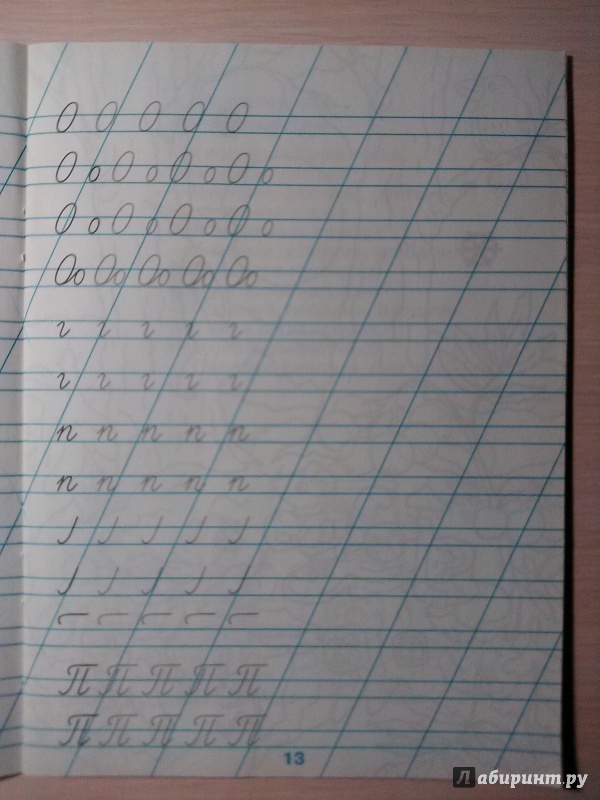 О О О О О
О о О о О о О о
О о О о О о О о
Оо Оо Оо Оо Оо
г г г г г
г г г г г
п п п п п
п п п п п
П П П П П
П П П П П
13
Лабиринт.ру